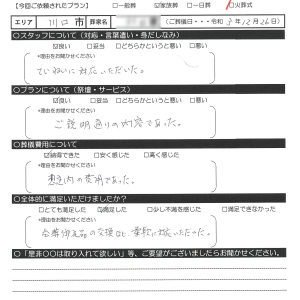 【今回ご依頼されたプラン】 □一般葬 ☑家族葬 □一日葬 □火葬式
エリア 川口市 葬家名 (ご葬儀日・・・令和 年12月26日)
○スタッフについて（対応・言葉遣い・身だしなみ）
☑良い □妥当 □どちらかというと悪い □悪い
*理由をお聞かせください
ていねいに対応いただいた。
○プランについて（祭壇・サービス）
☑良い □妥当 □どちらかというと悪い □悪い
*理由をお聞かせください
ご説明通りの内容であった。
○葬儀費用について
☑納得できた □安く感じた □高く感じた
*理由をお聞かせください
想定内の費用であった。
○全体的に満足いただけましたか？
□とても満足した ☑満足した □少し不満を感じた □満足できなかった
*理由をお聞かせください
会葬御礼品の交換など、柔軟に対応いただいた。
○「是非〇〇は取り入れて欲しい」等、ご要望がございましたらお聞かせください。